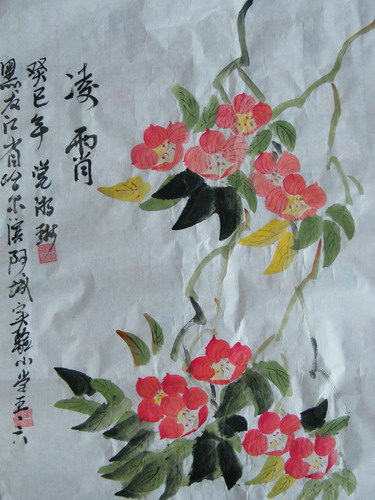 凌霄
癸巳年 党
黑龙江省哈尔滨阿城实验小学五·六